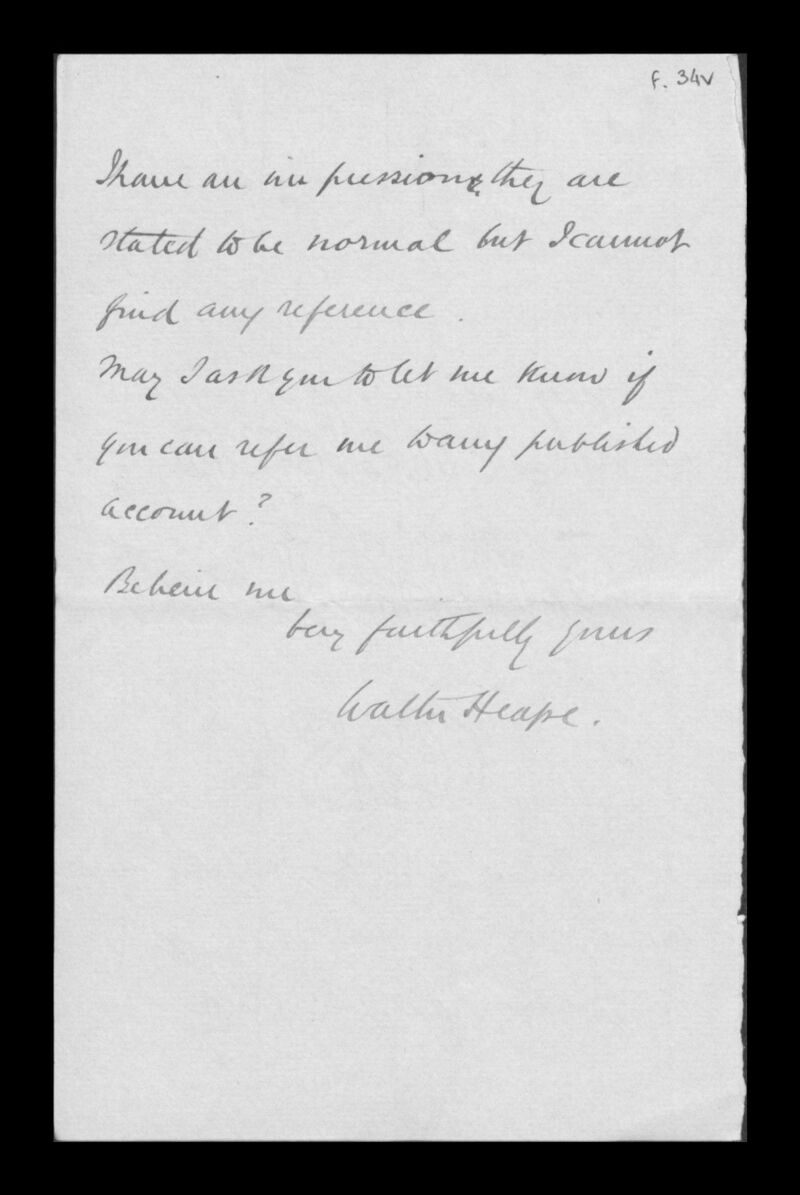 f. 34v
I have an impression they are
stated to be normal but I cannot
find any reference.
May I ask you to let me know if
you can refer me to any published
account?
Believe me
very faithfully yours
Walter Heape.